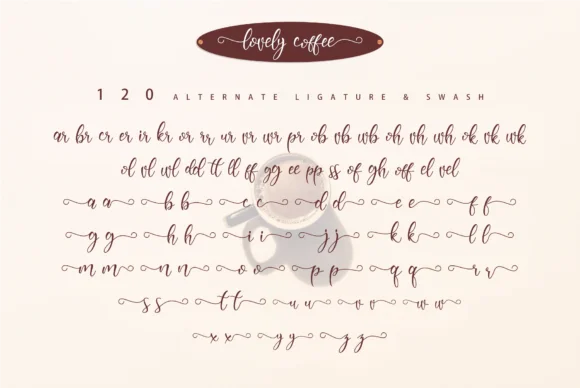 lovely coffee
120 ALTERNATE LIGATURE & SWASH
ar br cr er ir kr or rr ur vr wr pr ob vb wb oh vh wh ok vk wk
ol vl wl dd tt ll ff gg ee pp ss of gh off el vel
a a b b c c d d e e f f
g g h h i i j j k k l l
m m n n o o p p q q r r
s s t t u u v v w w
x x y y z z